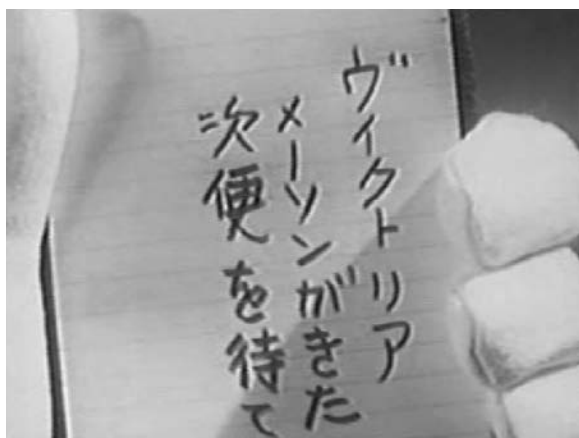 ヴィクトリア
メーソンがきた
次便を待て